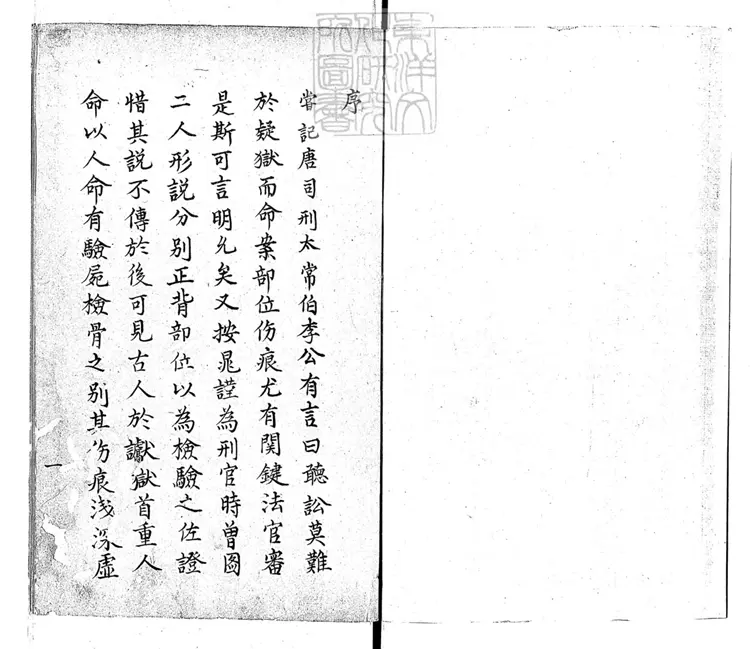 序
嘗記唐司刑太常伯李公有言曰聽訟莫難
於疑獄而命案部位伤痕尤有関鍵法官審
是斯可言明允矣又按晁謹為刑官時曾圖
二人形説分别正背部位以為檢驗之佐證
惜其説不傳於後可見古人於讞獄首重人
命以人命有驗屍檢骨之别其伤痕浅深虛
一
東洋文
化研究
所圖書